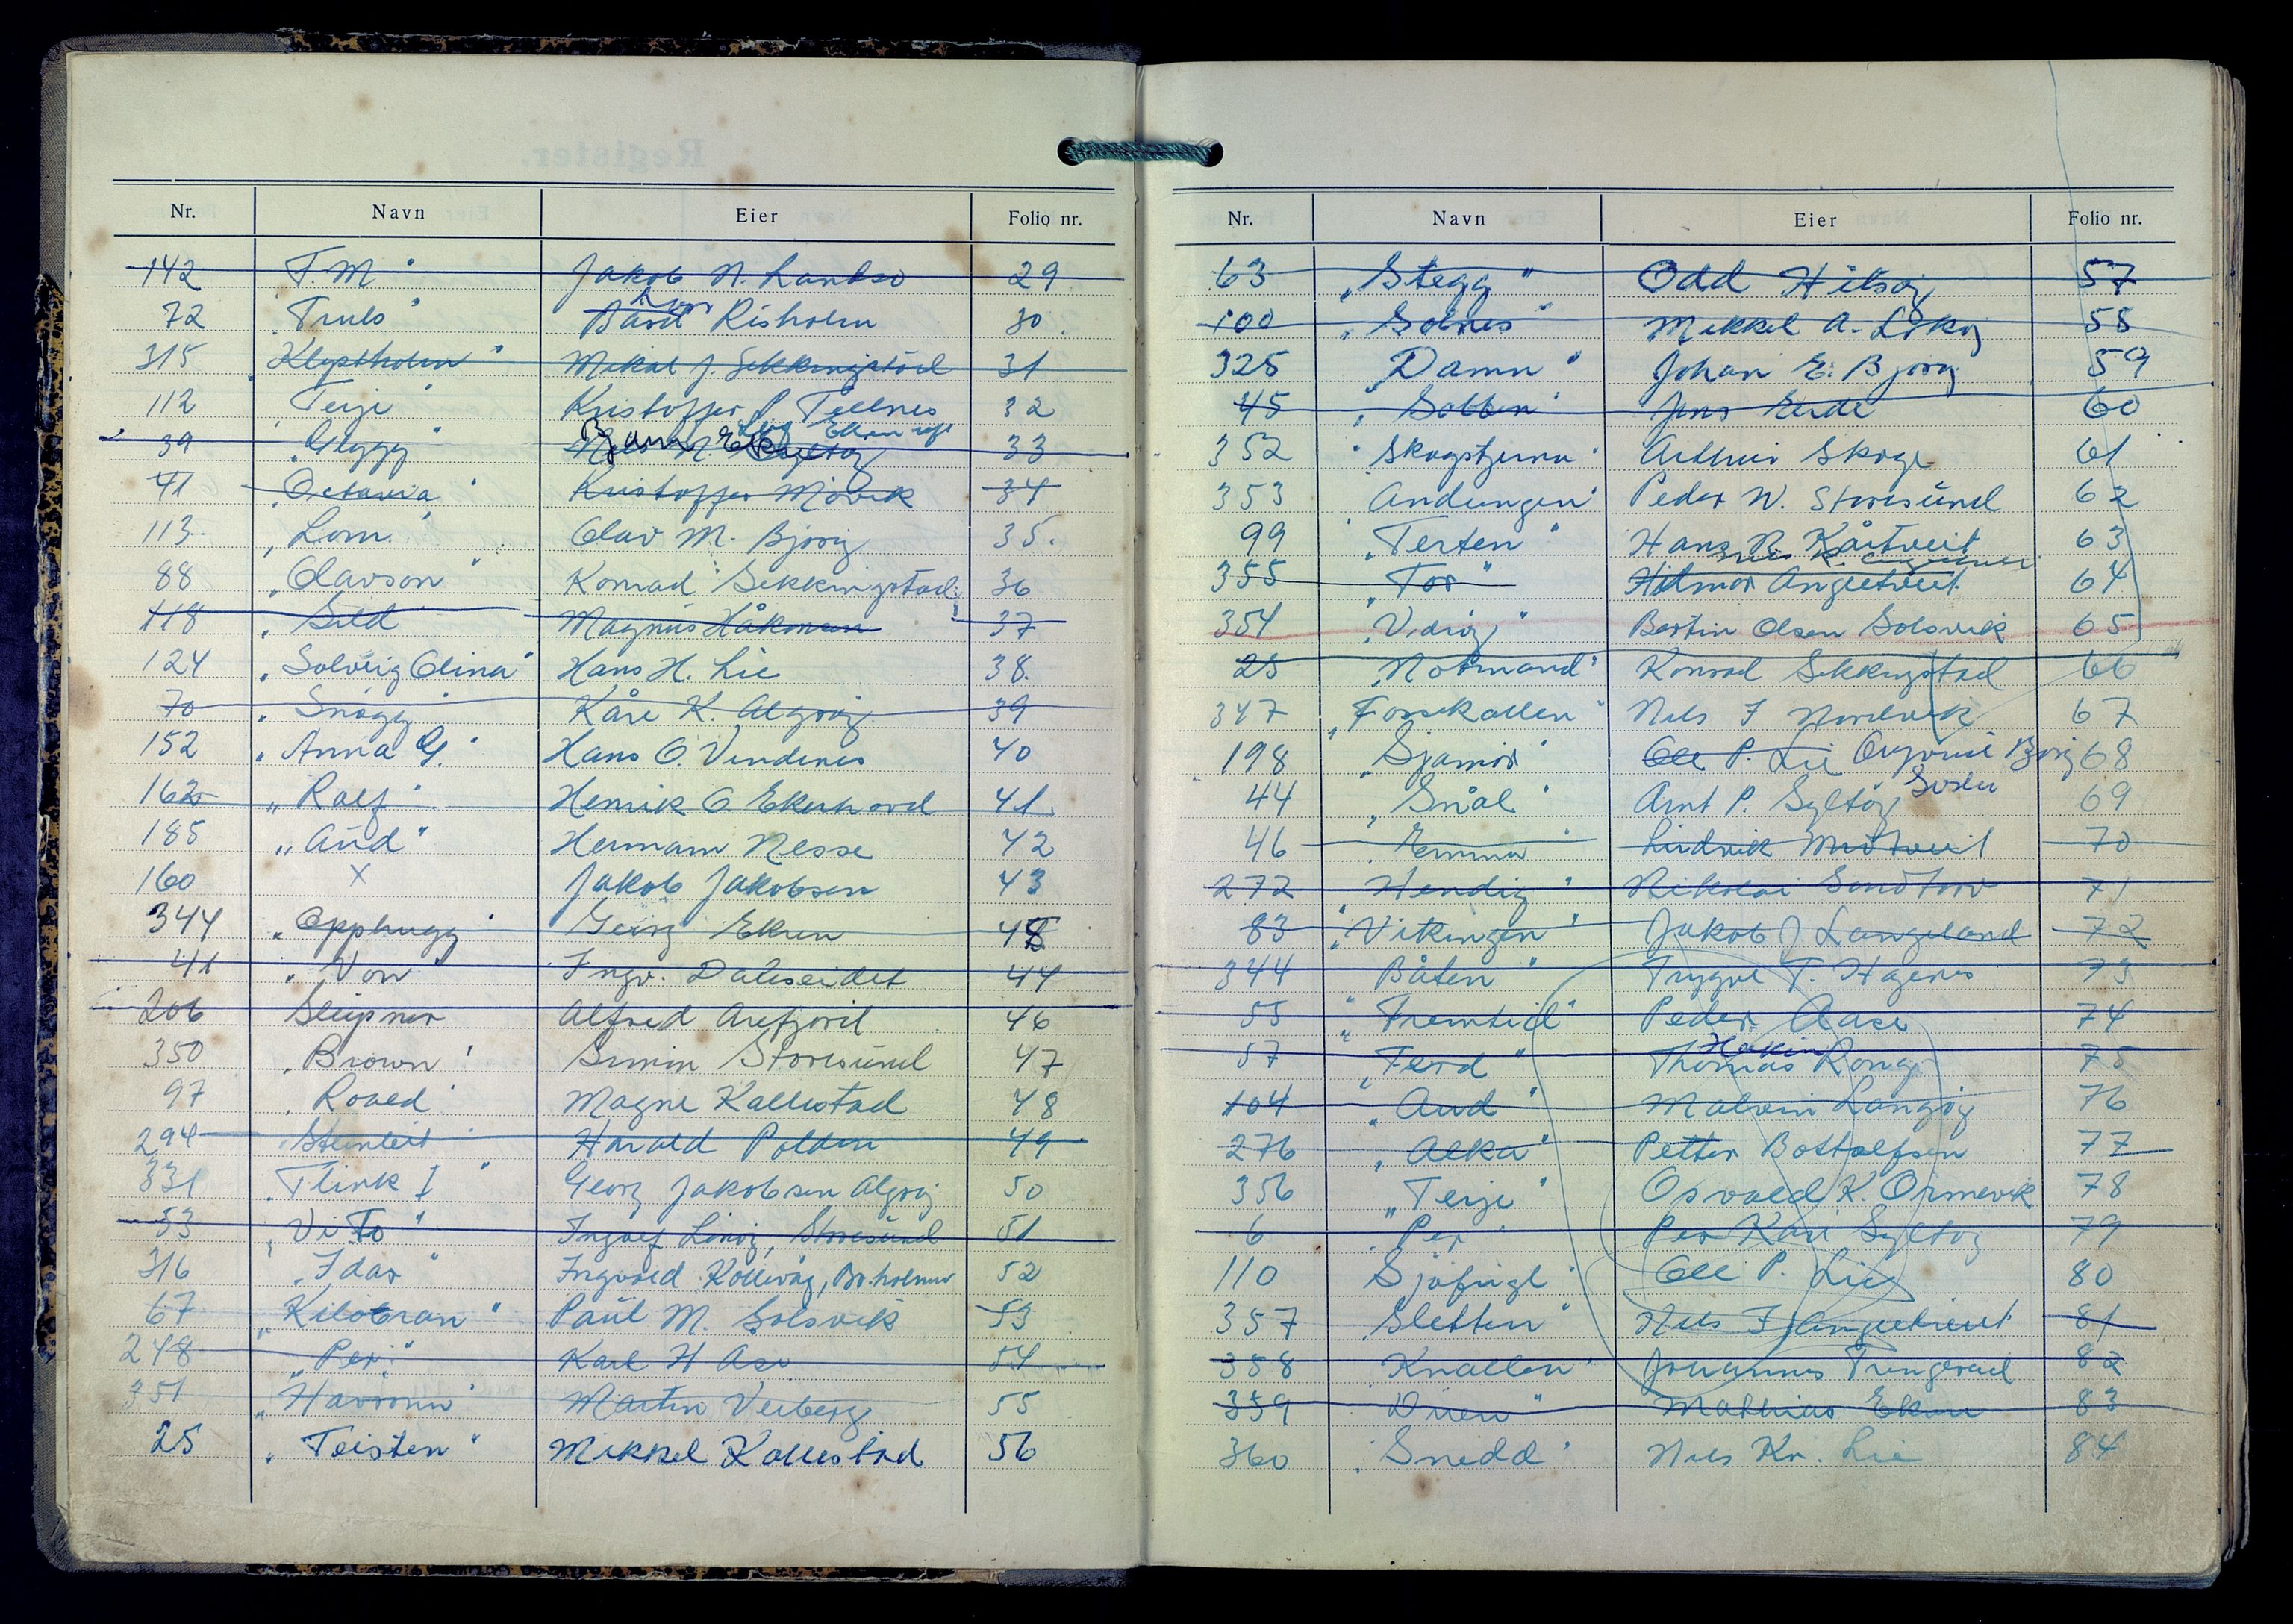 Nr. Navn Eier Folio nr.
142 "T. M" Jakob N. Landsø 29
72 "Truls" Bård Risholm 30.
315 "Klepholm" Mikal J. Sekkingstad 31
112 "Terje" Kristoffer P. Tellnes 32
39 "Glygg" Bjarne 33
41 "Octavia" Kristoffer Møvik 34
113 "Lom" Olav M. Bjorøy 35.
88 "Olavson" Konrad Sekkingstad 36
118 "Sild" Magnus Håkonsen 37
124 "Solveig Olina" Hans H. Lie 38.
70 "Snøgg" Kåre K. Algrøy 39
152 "Anna G." Hans O. Vindenes 40
162 "Ralf" Henrik O Ekerhovd 41
185 "Aud" Hermann Nesse 42
160 X Jakob Jakobsen 43
344 "Opphugg" Georg Ekren 45
41 "Von" Ingv. Daleseidet 44
206 Sleipner Alfred Arefjord 46
350 "Brown" Simin Storesund 47
97 "Roald" Magne Kallestad 48
294 Harald Polden 49
331 "Flink I" Georg Jakobsen Algrøy 50
53 "Vi To" Ingolf Linøy, Storesund 51
316 "Idar" Ingvald Kollevåg, 52
67 "Kilstran" Paul M. Solsvik 53
248 "Per" Karl H Åse 54
351 "Havørnin" Martin Veiberg 55
25 "Teisten" Mikkel Kallestad 56
Nr. Navn Eier Folio nr.
63 "Stegg" Odd Hitsøy 57
100 "Solnes" Mikkel A. Løkøy 58
325 "Damn" Johan E. Bjorøy 59
45 "Solbin" Jens Eide 60
352 "Skogstjerna" Arthur Skoge 61
353 "Andungen" Peder W. Storesund 62
99 "Terten" Hans R. Kårtveit 63
355 "Tor" Hilmar Angeltveit 64
354 "Vidrøy" Bertin Olsen Solsvik 65
25 "Notmand" Konrad Sekkingstad 66
347 "Fossekallen" Nils J Nordvik 67
198 "Sjømor" Ole P. Lie 68
44 "Snål" Arnt P. Syltøy 69
46 "Emma" Ludvik Midtveit 70
272 "Hendig" Nikolai Sandtorv 71
83 "Vikingen" Jakob J Langeland 72
344 "Båten" Trygve T. Hagenes 73
55 "Fremtid" Peder Aase 74
57 "Ferd" Thomas Håkin Rong 75
104 "Aud" Malvin Langøy 76
276 "Alka" Petter Bottolfsen 77
356 "Terje" Osvald K. Ormevik 78
6 "Per" Per Kåre Syltøy 79
110 Sjøfugl Ole P. Lie 80
357 "Sletten" Nils J Angeltveit 81
358 "Knallen" Johannes Tungesvik 82
359 "Duen" Mathias Ekren 83
360 "Snedd" Nils Kr. Lie 84